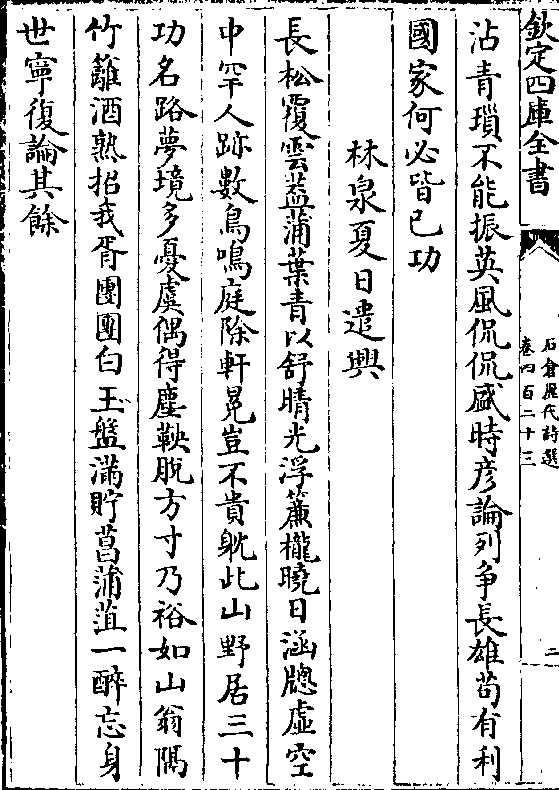 欽定四庫全書
石倉歷代詩選
卷四百二十三
二
沾青瑣不能振英風侃侃盛時彦論列爭長雄茍有利
國家何必皆已功
林泉夏日遣興
長松覆雲葢蒲葉青以舒晴光浮簾櫳曉日涵牕虛空
中罕人跡數鳥鳴庭除軒冕豈不貴躭此山野居三十
功名路夢境多憂虞偶得塵鞅脫方寸乃裕如山翁隅
竹籬酒熟招我胥團團白玉盤滿貯菖蒲菹一醉忘身
世寧復論其餘